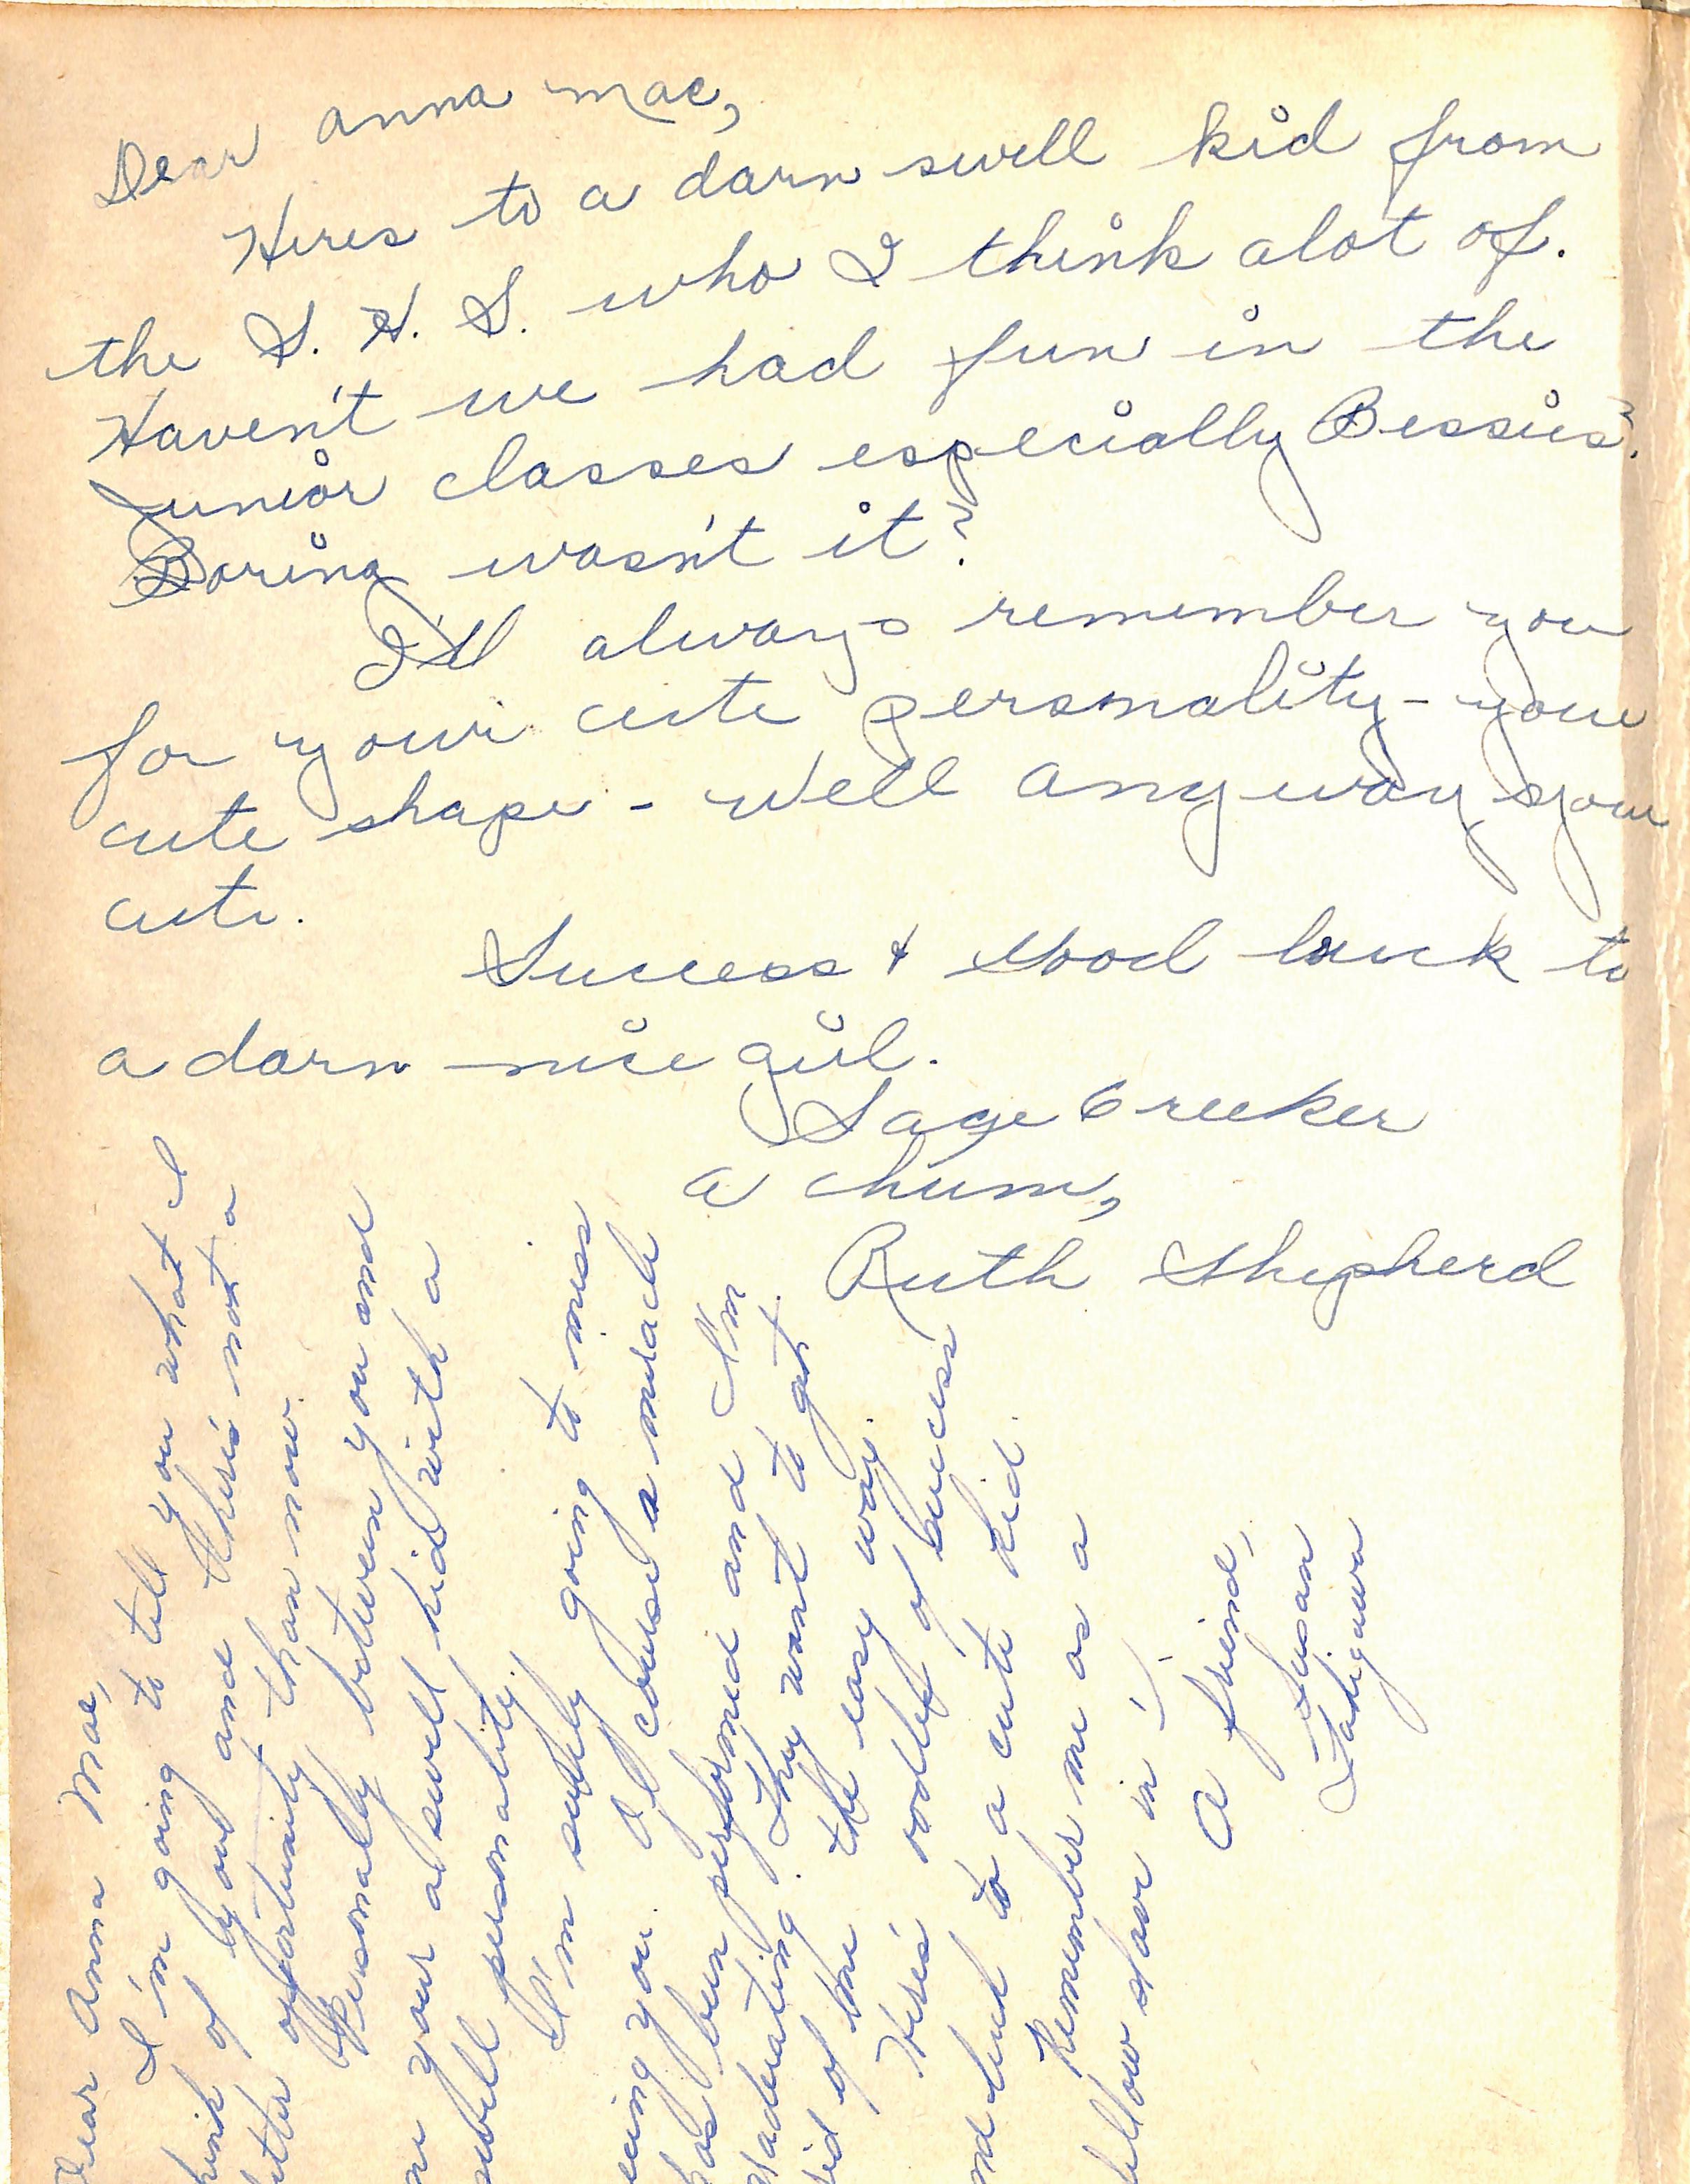 Dear Anna Mae,
Heres to a darn swell kid from
the S. H. S. who I think alot of.
Haven't we had fun in the
Junior classes especially Bessies?
Boring wasn't it?
I'll always remember you
for your cute personality - your
cute shape - well any way your
cute.
Success & Good luck to
a darn nice girl.
Sage Creeker
a chum,
Ruth Shepherd
Dear Anna Mae,
I'm going to tell you what I
think of you and there's not a
better opportunity than now.
Personally between you and
me your a swell kid with a
swell personality.
I'm surely going to miss
seeing you. Of course a miracle
has been performed and I'm
graduating. They want to get
rid of me the easy way.
Here's oodles of success
and luck to a cute kid.
Remember me as a
fellow slave in
A friend,
Susan